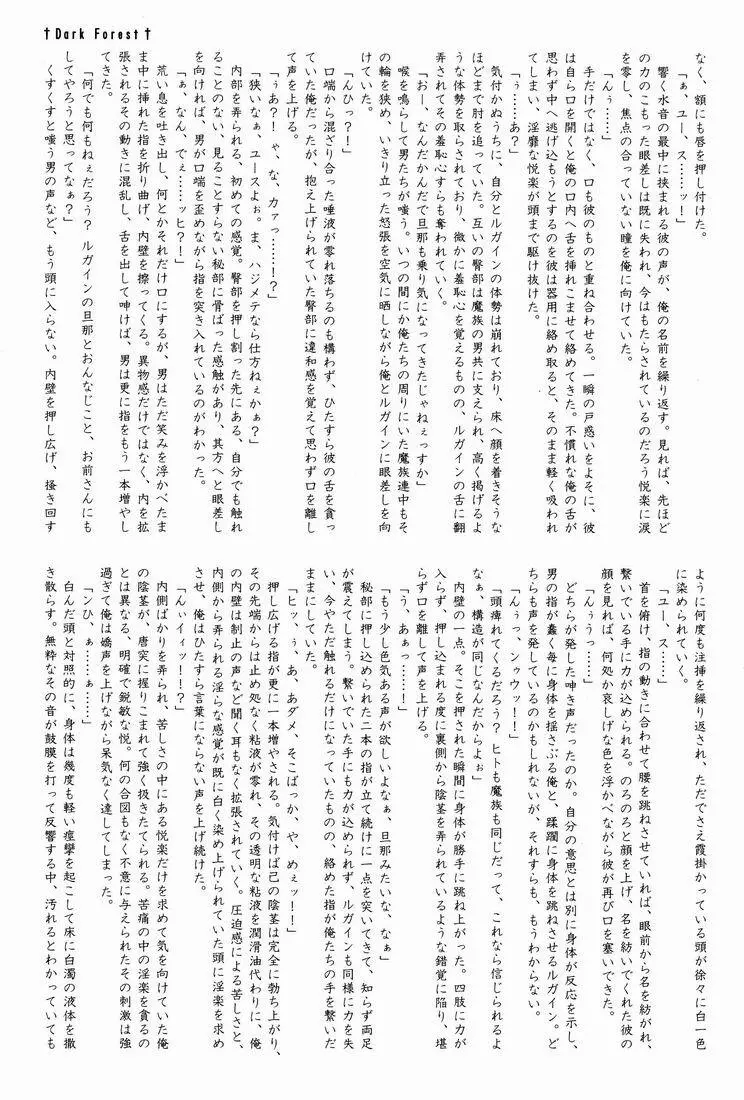 †Dark Forest†
なく、額にも唇を押し付けた。
「ぁ、ユー、ス……ッ！」
響く水音の最中に挟まれる彼の声が、俺の名前を繰り返す。見れば、先ほど
の力のこもった眼差しは既に失われ、今はもたらされているのだろう悦楽に涙
を零し、焦点の合っていない瞳を俺に向けていた。
「んぅ……」
手だけではなく、口も彼のものと重ね合わせる。一瞬の戸惑いをよそに、彼
は自ら口を開くと俺の口内へ舌を挿れこませて絡めてきた。不慣れな俺の舌が
思わず中へ逃げ込もうとするのを彼は器用に絡め取ると、そのまま軽く吸われ
てしまい、淫靡な悦楽が頭まで駆け抜けた。
「ぅ……あ？」
気付かぬうちに、自分とルガインの体勢は崩れており、床へ顔を着きそうな
ほどまで肘を追っていた。互いの臀部は魔族の男共に支えられ、高く掲げるよ
うな体勢を取らされており、微かに羞恥心を覚えるものの、ルガインの舌に翻
弄されてその羞恥心すらも奪われていく。
「おー、なんだかんだで旦那も乗り気になってきたじゃねぇっすか」
喉を鳴らして男たちが嗤う。いつの間にか俺たちの周りにいた魔族連中もそ
の輪を狭め、いきり立った怒張を空気に晒しながら俺とルガインに眼差しを向
けていた。
「んひっ？！」
口端から混ざり合った唾液が零れ落ちるのも構わず、ひたすら彼の舌を貪っ
ていた俺だったが、抱え上げられていた臀部に違和感を覚えて思わず口を離し
て声を上げる。
「ぅあ？！ ゃ、な、カァっ……！？」
「狭いなぁ、ユースよぉ。ま、ハジメテなら仕方ねぇかぁ？」
内部を弄られる、初めての感覚。臀部を押し割った先にある、自分でも触れ
ることのない、見ることすらない秘部に骨ばった感触があり、其方へと眼差し
を向ければ、男が口端を歪めながら指を突き入れているのがわかった。
「ぁ、なん、でぇ……ッヒ？！」
荒い息を吐き出し、何とかそれだけ口にするが、男はただ笑みを浮かべたま
ま中に挿れた指を折り曲げ、内壁を擦ってくる。異物感だけではなく、内を拡
張されるその動きに混乱し、舌を出して呻けば、男は更に指をもう一本増やし
てきた。
「何でも何もねぇだろう？ ルガインの旦那とおんなじこと、お前さんにも
してやろうと思ってなぁ？」
くすくすと嗤う男の声など、もう頭に入らない。内壁を押し広げ、掻き回す
ように何度も注挿を繰り返され、ただでさえ霞掛かっている頭が徐々に白一色
に染められていく。
「ユー、ス……」
首を俯け、指の動きに合わせて腰を跳ねさせていれば、眼前から名を紡がれ、
繋いでいる手に力が込められる。のろのろと顔を上げ、名を紡いでくれた彼の
顔を見れば、何処か哀しげな色を浮かべながら彼が再び口を塞いできた。
「んぅうっ……」
どちらが発した呻き声だったのか。自分の意思とは別に身体が反応を示し、
男の指が蠢く毎に身体を揺さぶる俺と、蹂躙に身体を跳ねさせるルガイン。ど
ちらも声を発しているのかもしれないが、それすらも、もうわからない。
「んぅぅっ、ンゥウッ！！」
「頭痺れてくるだろう？ ヒトも魔族も同じだって、これなら信じられるよ
なぁ、構造が同じなんだからよぉ」
内壁の一点。そこを押された瞬間に身体が勝手に跳ね上がった。四肢に力が
入らず、押し込まれる度に裏側から陰茎を弄られているような錯覚に陥り、堪
らず口を離して声を上げる。
「う、あぁっ……！」
「もう少し色気ある声が欲しいよなぁ、旦那みたいな、なぁ」
秘部に押し込められた二本の指が立て続けに一点を突いてきて、知らず両足
が震えてしまう。繋いでいた手にも力が込められず、ルガインも同様に力を失
い、今やただ触れるだけになっていたものの、絡めた指が俺たちの手を繋いだ
ままにしていた。
「ヒッ、ぅ、あ、あダメ、そこばっか、や、めぇッ！！」
押し広げる指が更に一本増やされる。気付けば己の陰茎は完全に勃ち上がり、
その先端からは止め処なく粘液が零れ、その透明な粘液を潤滑油代わりに、俺
の内壁は制止の声など聞く耳もなく拡張されていく。圧迫感による苦しさと、
内側から弄られる淫らな感覚が既に白く染め上げられていた頭に淫楽を求め
させ、俺はひたすら言葉にならない声を上げ続けた。
「んぃイィッ！！？」
内側ばかりを弄られ、苦しさの中にある悦楽だけを求めて気を向けていた俺
の陰茎が、唐突に握りこまれて強く扱きたてられる。苦痛の中の淫楽を貪るの
とは異なる、明確で鋭敏な悦。何の合図もなく不意に与えられたその刺激は強
過ぎて俺は嬌声を上げながら呆気なく達してしまった。
「ンひ、ぁ……ぁ……」
白んだ頭と対照的に、身体は幾度も軽い痙攣を起こして床に白濁の液体を撒
き散らす。無粋なその音が鼓膜を打って反響する中、汚れるとわかっていても